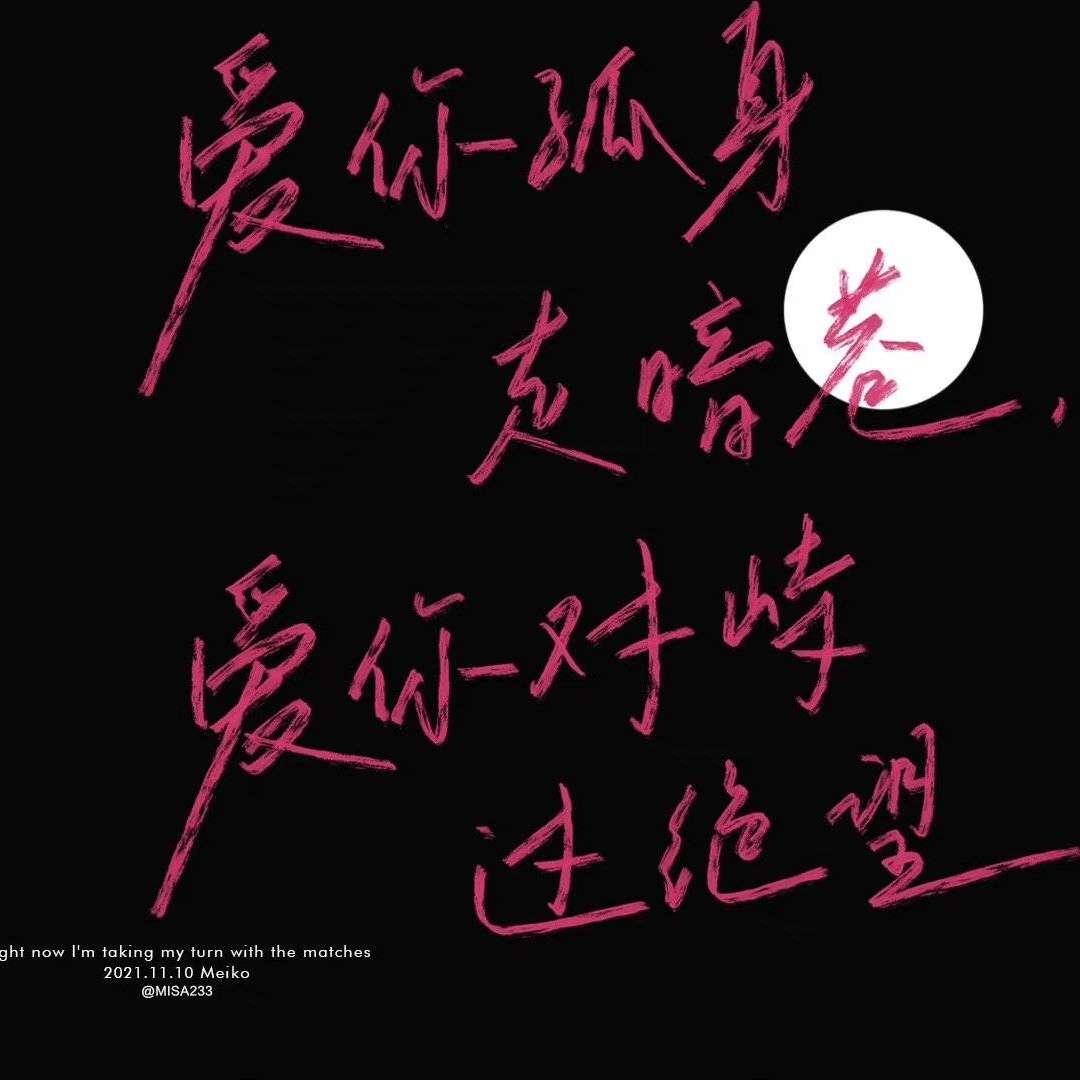 爱你孤身
走暗巷，
爱你对峙
过绝望
ght now I'm taking my turn with the matches
2021.11.10 Meiko
@MISA233